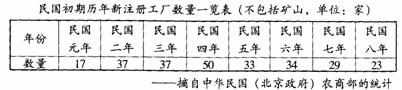 民国初期历年新注册工厂数量一览表（不包括矿山，单位：家）
年份 民国元年 民国二年 民国三年 民国四年 民国五年 民国六年 民国七年 民国八年
数量 17 37 37 50 33 34 29 23
——摘自中华民国（北京政府）农商部的统计